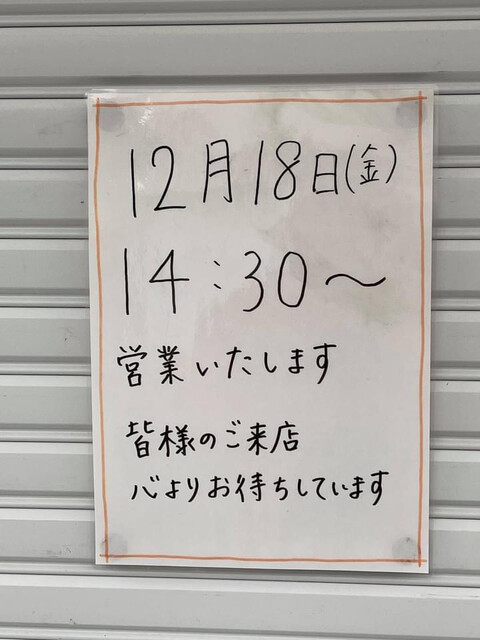 12月18日(金)
14:30〜
営業いたします
皆様のご来店
心よりお待ちしています